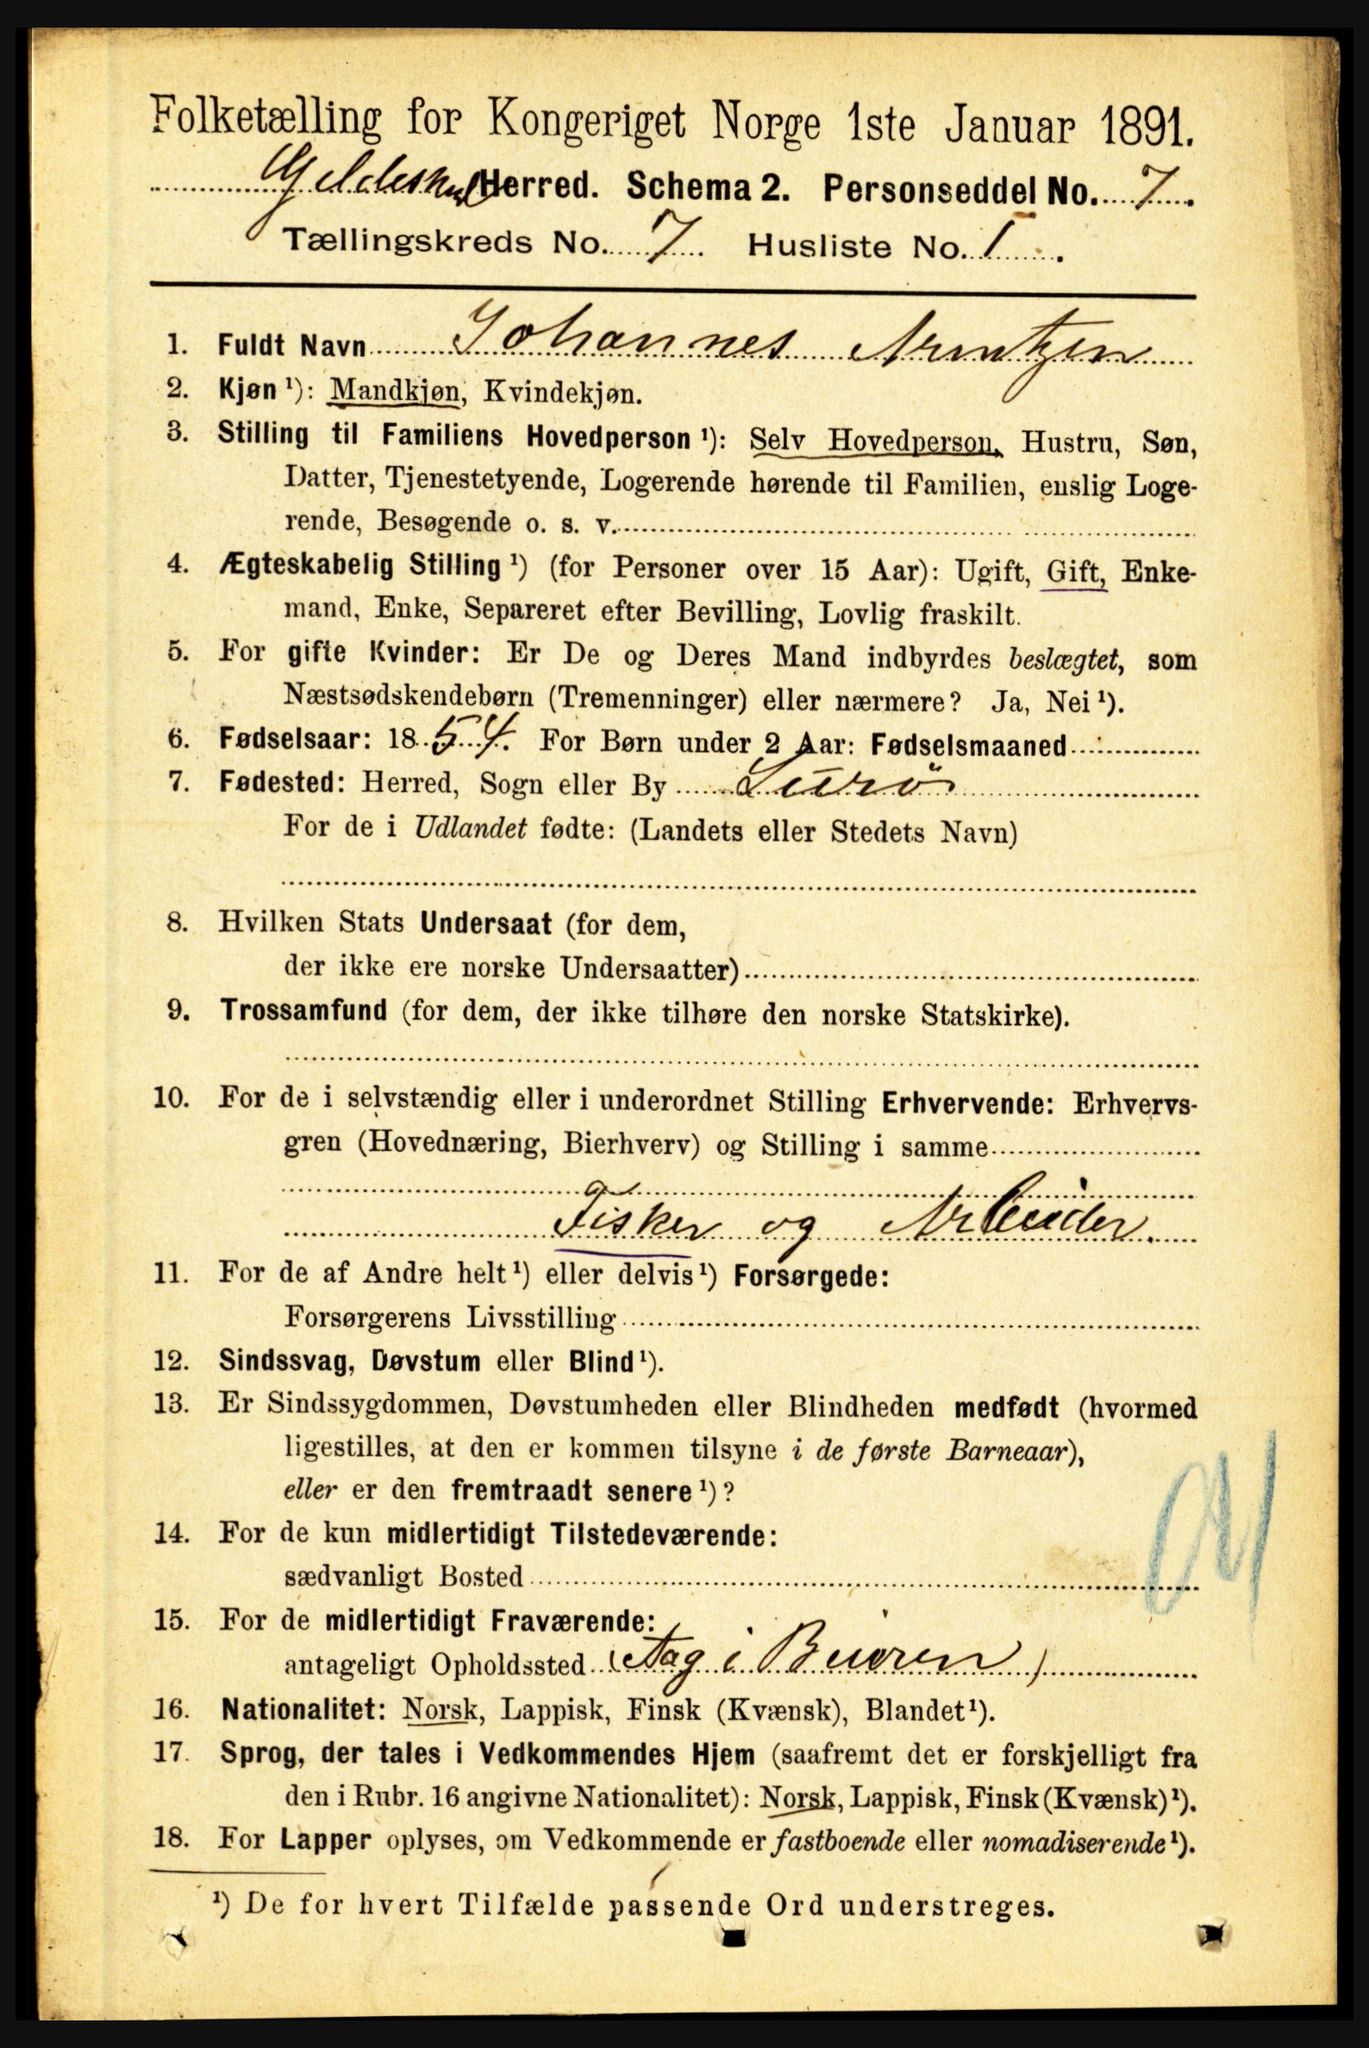 Folketælling for Kongeriget Norge 1ste Januar 1891.
Gildeskaal Herred. Schema 2. Personseddel No. 7.
Tællingskreds No. 7. Husliste No. 1.
1. Fuldt Navn Johannes Arntzen
2. Kjøn ¹): Mandkjøn, Kvindekjøn.
3. Stilling til Familiens Hovedperson ¹): Selv Hovedperson, Hustru, Søn,
Datter, Tjenestetyende, Logerende hørende til Familien, enslig Loge-
rende, Besøgende o. s. v.
4. Ægteskabelig Stilling ¹) (for Personer over 15 Aar): Ugift, Gift, Enke-
mand, Enke, Separeret efter Bevilling, Lovlig fraskilt.
5. For gifte Kvinder: Er De og Deres Mand indbyrdes beslægtet, som
Næstsødskendebørn (Tremenninger) eller nærmere? Ja, Nei ¹).
6. Fødselsaar: 1854. For Børn under 2 Aar: Fødselsmaaned
7. Fødested: Herred, Sogn eller By Lurø
For de i Udlandet fødte: (Landets eller Stedets Navn)
8. Hvilken Stats Undersaat (for dem,
der ikke ere norske Undersaatter)
9. Trossamfund (for dem, der ikke tilhøre den norske Statskirke).
10. For de i selvstændig eller i underordnet Stilling Erhvervende: Erhvervs-
gren (Hovednæring, Bierhverv) og Stilling i samme
Fisker og Arbeider.
11. For de af Andre helt ¹) eller delvis ¹) Forsørgede:
Forsørgerens Livsstilling
12. Sindssvag, Døvstum eller Blind ¹).
13. Er Sindssygdommen, Døvstumheden eller Blindheden medfødt (hvormed
ligestilles, at den er kommen tilsyne i de første Barneaar),
eller er den fremtraadt senere ¹)?
14. For de kun midlertidigt Tilstedeværende:
sædvanligt Bosted
15. For de midlertidigt Fraværende:
antageligt Opholdssted (Aag i Beiren)
16. Nationalitet: Norsk, Lappisk, Finsk (Kvænsk), Blandet ¹).
17. Sprog, der tales i Vedkommendes Hjem (saafremt det er forskjelligt fra
den i Rubr. 16 angivne Nationalitet): Norsk, Lappisk, Finsk (Kvænsk) ¹).
18. For Lapper oplyses, om Vedkommende er fastboende eller nomadiserende ¹).
¹) De for hvert Tilfælde passende Ord understreges.